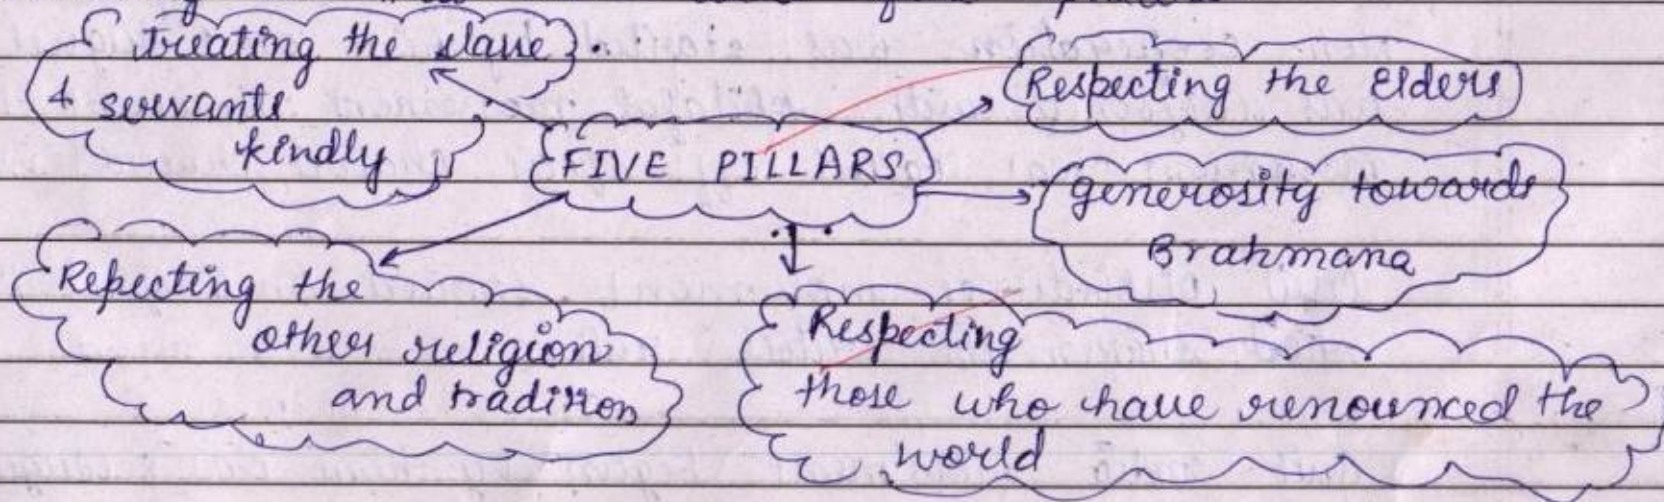 treating the slave
& servants
kindly
FIVE PILLARS
Respecting the Elders
generosity towards
Brahmana
Repecting the
other religion
and tradition
Respecting
those who have renounced the
world